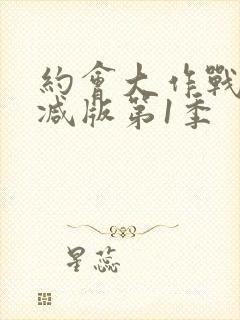 約會大作戰
減版第1季
星蕊